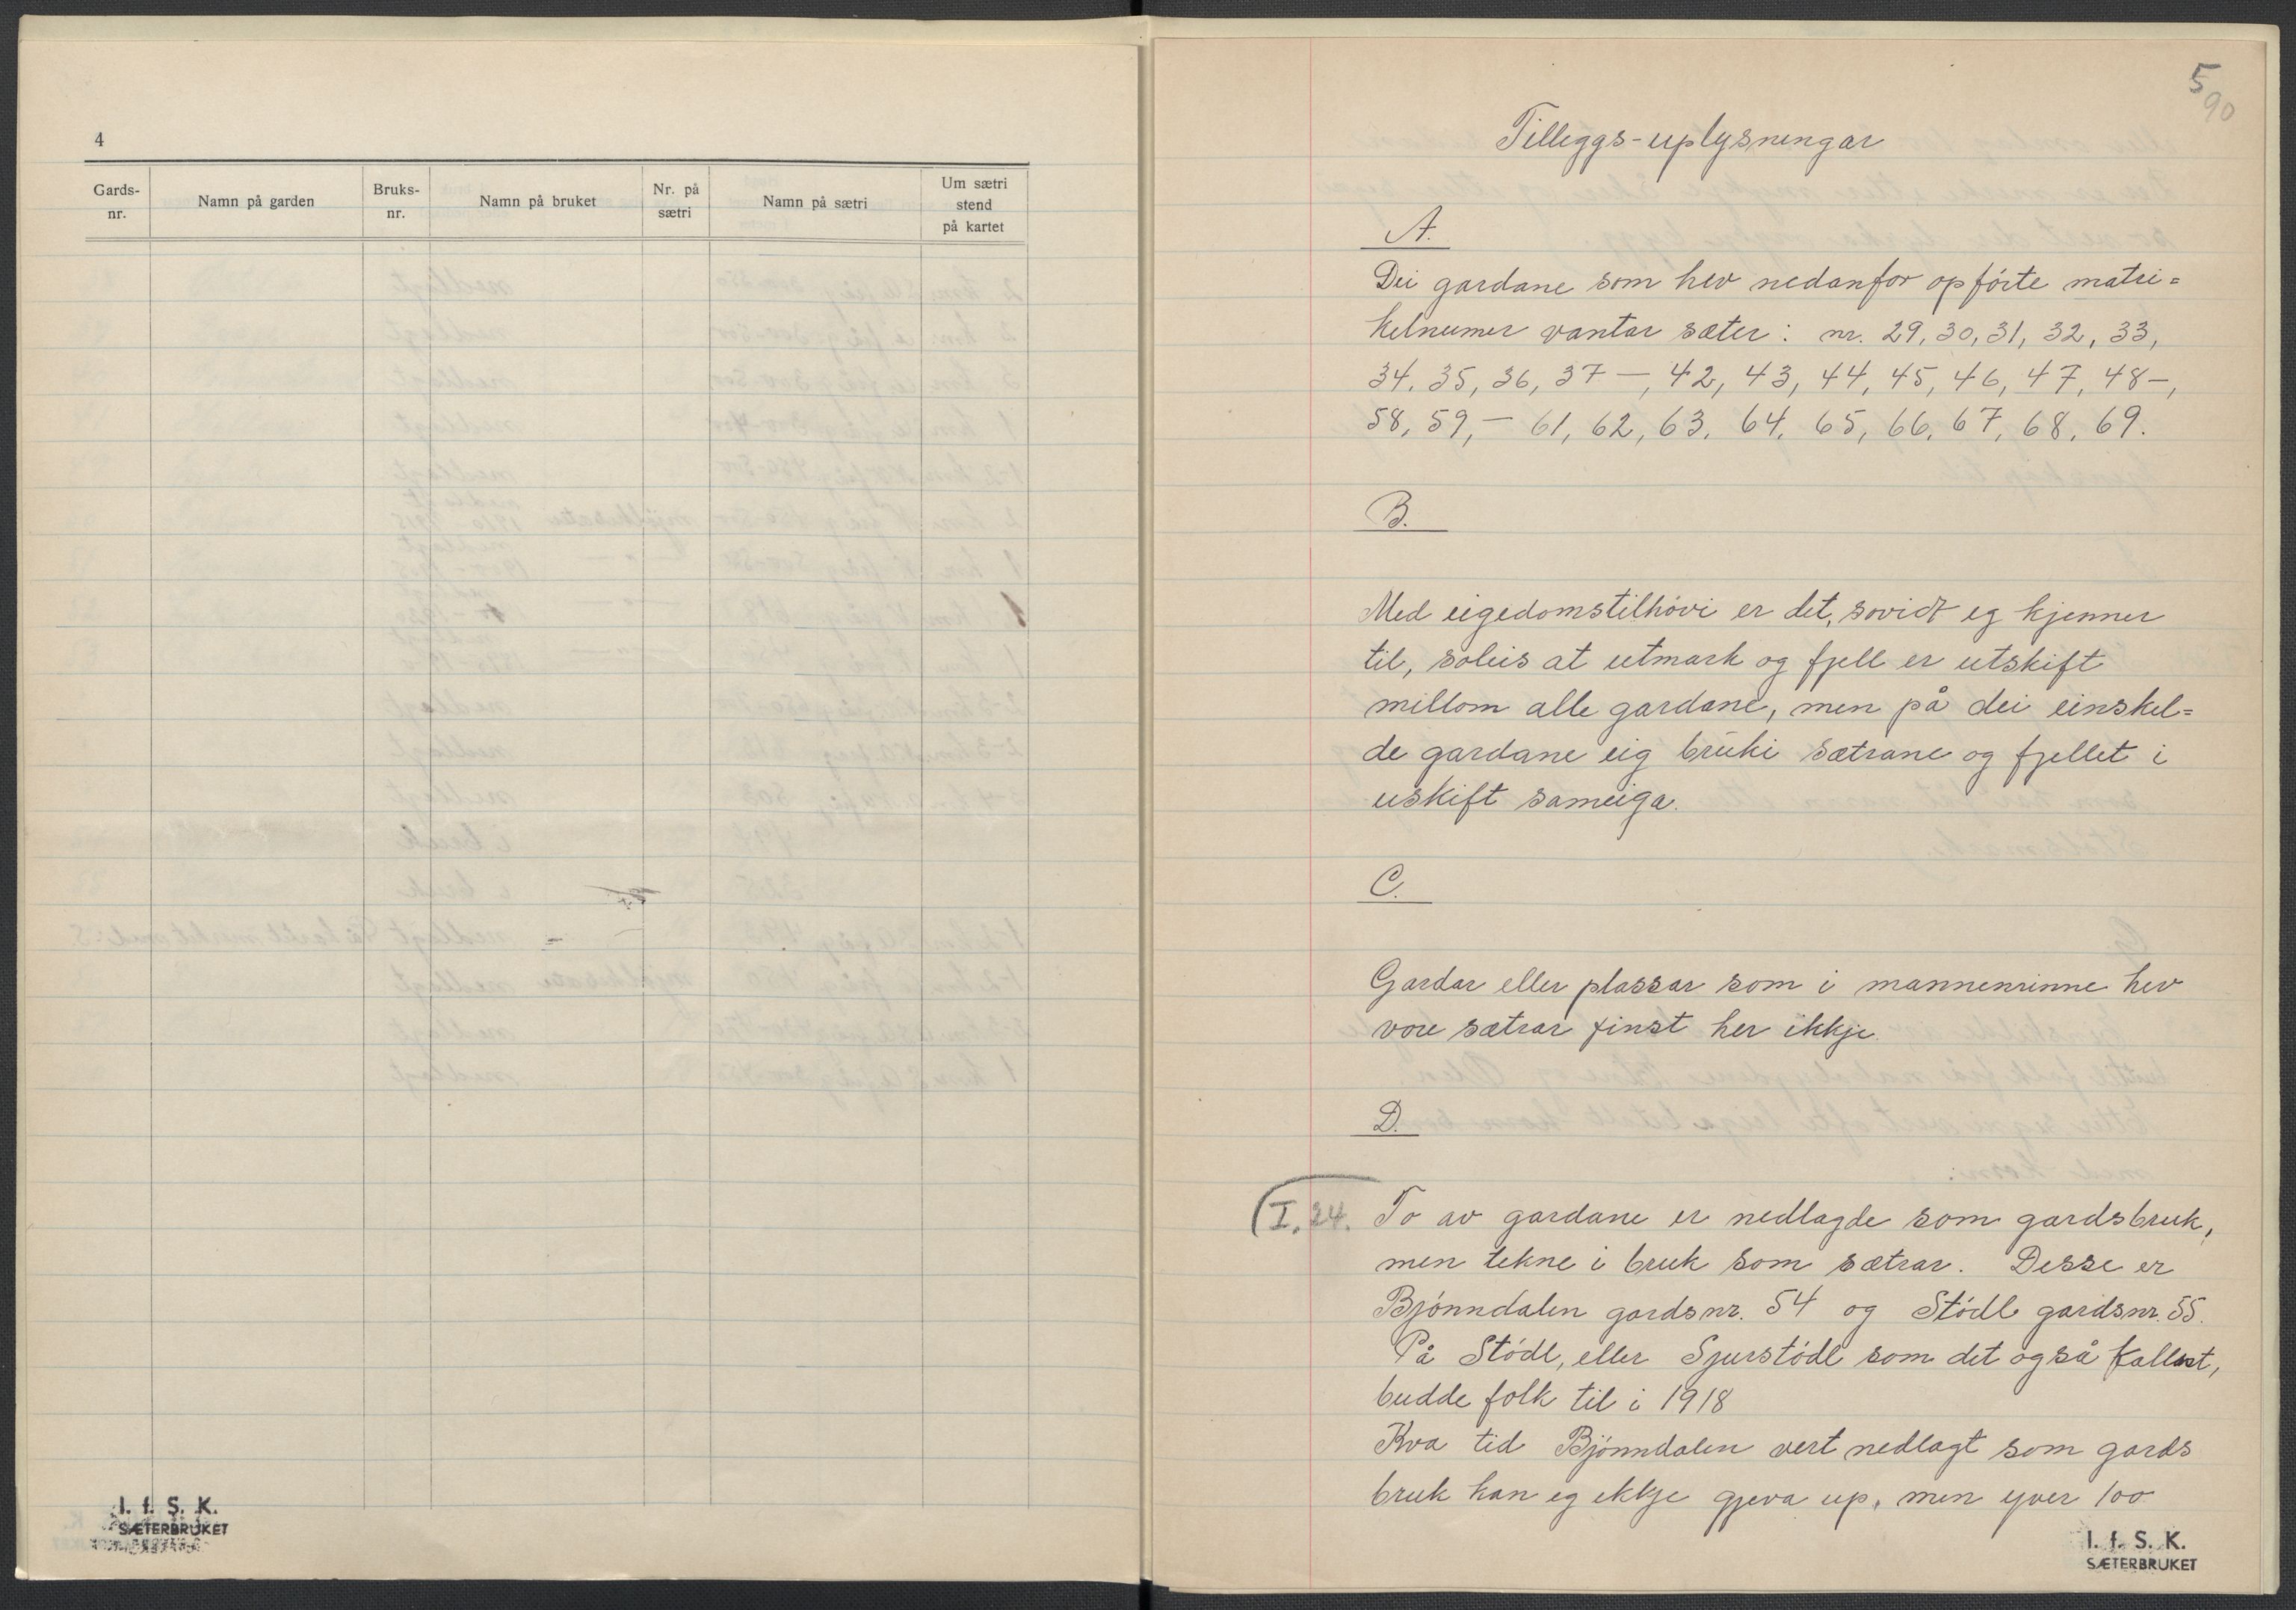 4
Gards-
nr.
Namn på garden
Bruks-
nr.
Namn på bruket
Nr. på
sætri
Namn på sætri
Um sætri
stend
på kartet
I. f. S. K.
SÆTERBRUKET
5
90
Tilleggs-uplysningar
A.
Dei gardane som hev nedanfor opførte matri=
kelnumer vantar sæter: nr. 29, 30, 31, 32, 33,
34, 35, 36, 37 —, 42, 43, 44, 45, 46, 47, 48 —,
58, 59, — 61, 62, 63, 64, 65, 66, 67, 68, 69.
B.
Med eigedomstilhøvi er det, sovidt eg kjenner
til, soleis at utmark og fjell er utskift
millom alle gardane, men på dei einskel=
de gardane eig bruki sætrane og fjellet i
uskift sameiga.
C.
Gardar eller plassar som i mannenrinne hev
vore sætrar finst her ikkje.
D.
I. 24. To av gardane er nedlagde som gardsbruk,
men tekne i bruk som sætrar. Desse er
Bjønndalen gardsnr. 54 og Stødl gardsnr. 55.
På Stødl, eller Sjurstødl som det også kallast,
budde folk til i 1918
Kva tid Bjønndalen vert nedlagt som gards
bruk kan eg ikkje gjeva up, men yver 100
I. f. S. K.
SÆTERBRUKET